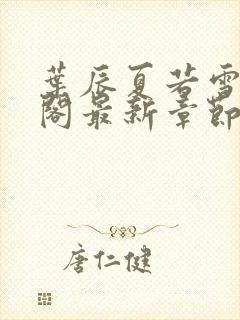 葉辰夏若雪
閣最新章節
唐仁健